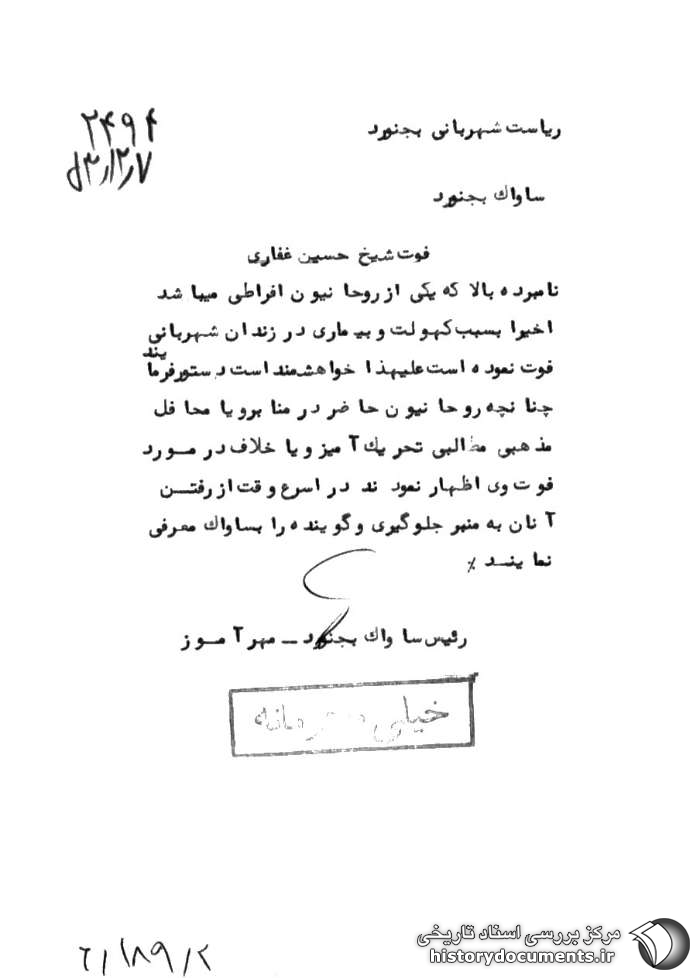 ریاست شهربانی بجنورد
۲۴۹۴
۵۳/۱۲/۷
ساواك بجنورد
فوت شیخ حسین غفاری
نامبرده بالا که یکی از روحانیون افراطی میباشد
اخیرا بسبب کهولت و بیماری در زندان شهربانی
فوت نموده است علیهذا خواهشمند است دستور فرمایند
چنانچه روحانیون حاضر در منابر و یا محافل
مذهبی مطالبی تحریك آمیز و یا خلاف در مورد
فوت وی اظهار نمودند در اسرع وقت از رفتن
آنان به منبر جلوگیری و گوینده را بساواك معرفی
نمایند ٪
رئیس ساواك بجنورد ــ مهرآموز
خیلی محرمانه
۶/۱۸۹/۲
مرکز بررسی اسناد تاریخی
historydocuments.ir